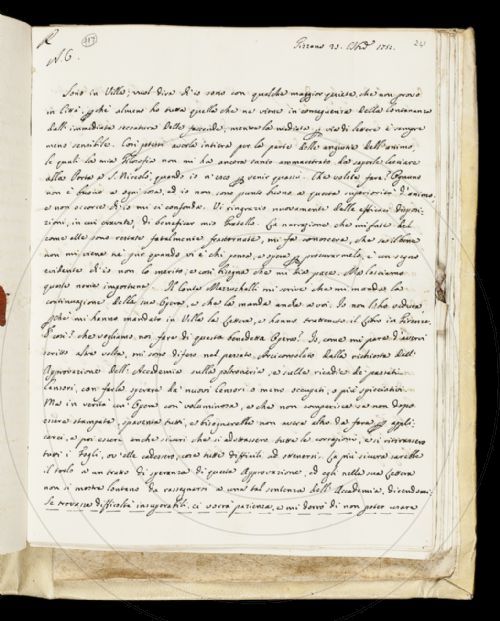 217
24
N. C.
Sono in Villa; vuol dire ch'io sono con qualche maggior quiete, che non provo
in Città, perché almeno ho tutta quella che ne viene in conseguenza della lontananza
dall'immediata seccatura delle faccende, mentre la mediata per via di lettere è sempre
meno sensibile. Così potessi averla intiera per la parte delle angustie dell'animo,
le quali la mia filosofia non mi ha ancora tanto ammaestrato ha saperle lasciare
alla Porta a S. Niccolò quando io n'esco per venir quassù. Che volete fare? Ognuno
non è buono a ogni cosa, ed io non sono punto buono a questa superiorità d'animo
e non occorre ch'io mi ci confonda. Vi ringrazio nuovamente delle efficaci disposi-
zioni, in cui eravate, di beneficar mio fratello. La narrazione che mi fate del
come elle sono restate fatalmente frastornate, mi fa conoscere, che se il bene
non mi viene né pur quando vi è chi pensa, e opera per procurarmelo, è un segno
evidente ch'io non lo merito, e così bisogna che mi dia pace. Ma lasciamo
queste novie importune. Il Conte Mazzuchelli mi scrive che mi manda la
continuazione della sua Opera, e che la manda anche a voi. Io non l'ho veduta
perché mi hanno mandato in Villa la Lettera, e hanno trattenuto il Libro in Firenze.
E così? che vogliamo noi fare di questa benedetta Opera? Io, come mi pare d'avervi
scritto altra volta, mi sono difeso nel passato Arciconsolato dalla richiesta dell'
Approvazione dell'Accademia sulla patronaria, e sulle ricadie de' passati
Censori, con farla sperare da' nuovi Censori o meno occupati, o più spicciativi.
Ma in verità un'Opera così voluminosa, e che non comparisce se non dopo
essere stampata, spaventa tutti, e bisognerebbe non avere altro da fare per appli-
carci, e poi essere anche sicuri che si adottassero tutte le correzioni, e si ristampassero
tutti i fogli, ov'elle cadessero, cose tutte difficili ad ottenersi. La più sicura sarebbe
il torlo a un tratto di speranza di questa Approvazione, ed egli nella sua Lettera
non si mostra lontano da rassegnarsi a una tal sentenza dell'Accademia, dicendomi:
Se trovasse difficoltà insuperabili, ci vorrà pazienza, e mi dorrò di non poter usare